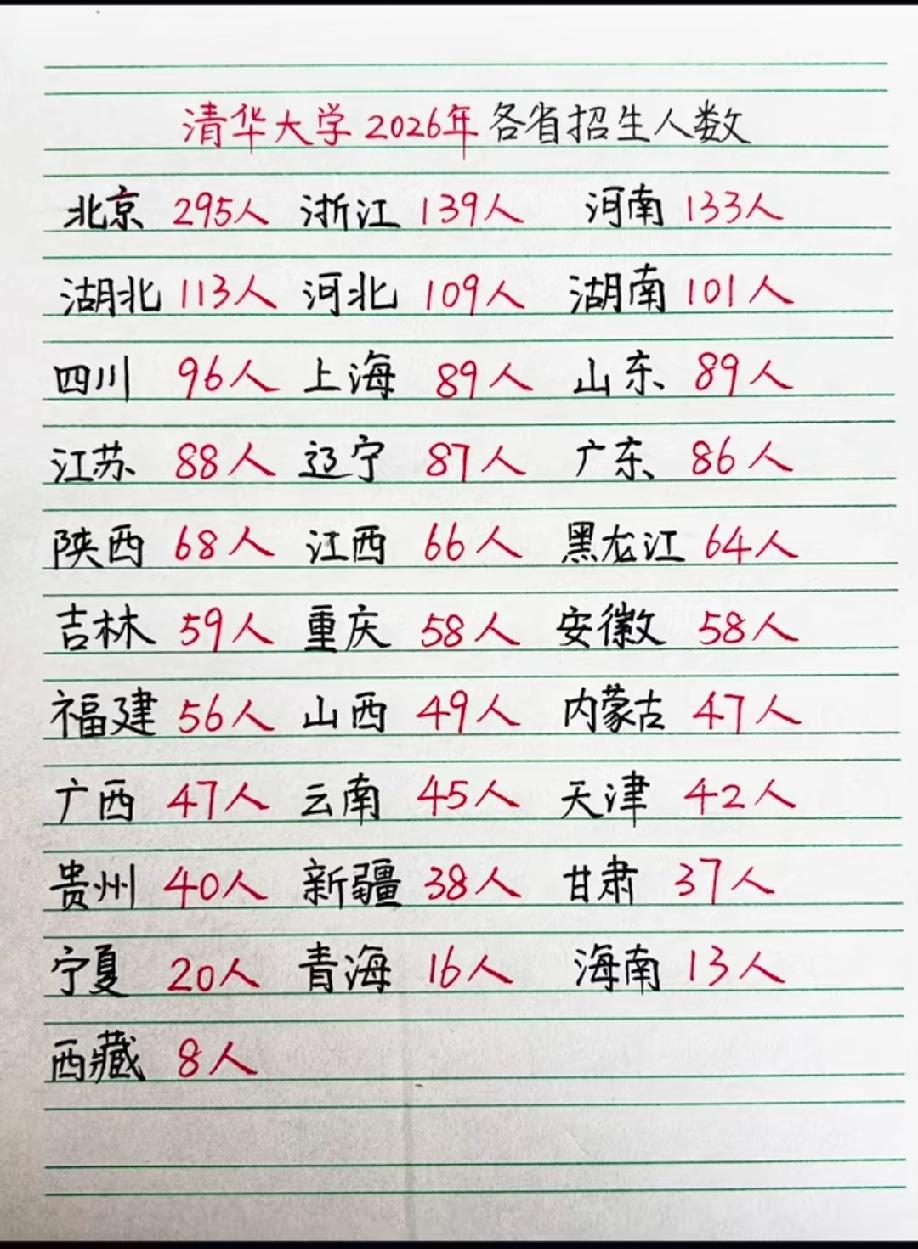 清华大学2026年各省招生人数
北京 295人 浙江 139人 河南 133人
湖北 113人 河北 109人 湖南 101人
四川 96人 上海 89人 山东 89人
江苏 88人 辽宁 87人 广东 86人
陕西 68人 江西 66人 黑龙江 64人
吉林 59人 重庆 58人 安徽 58人
福建 56人 山西 49人 内蒙古 47人
广西 47人 云南 45人 天津 42人
贵州 40人 新疆 38人 甘肃 37人
宁夏 20人 青海 16人 海南 13人
西藏 8人